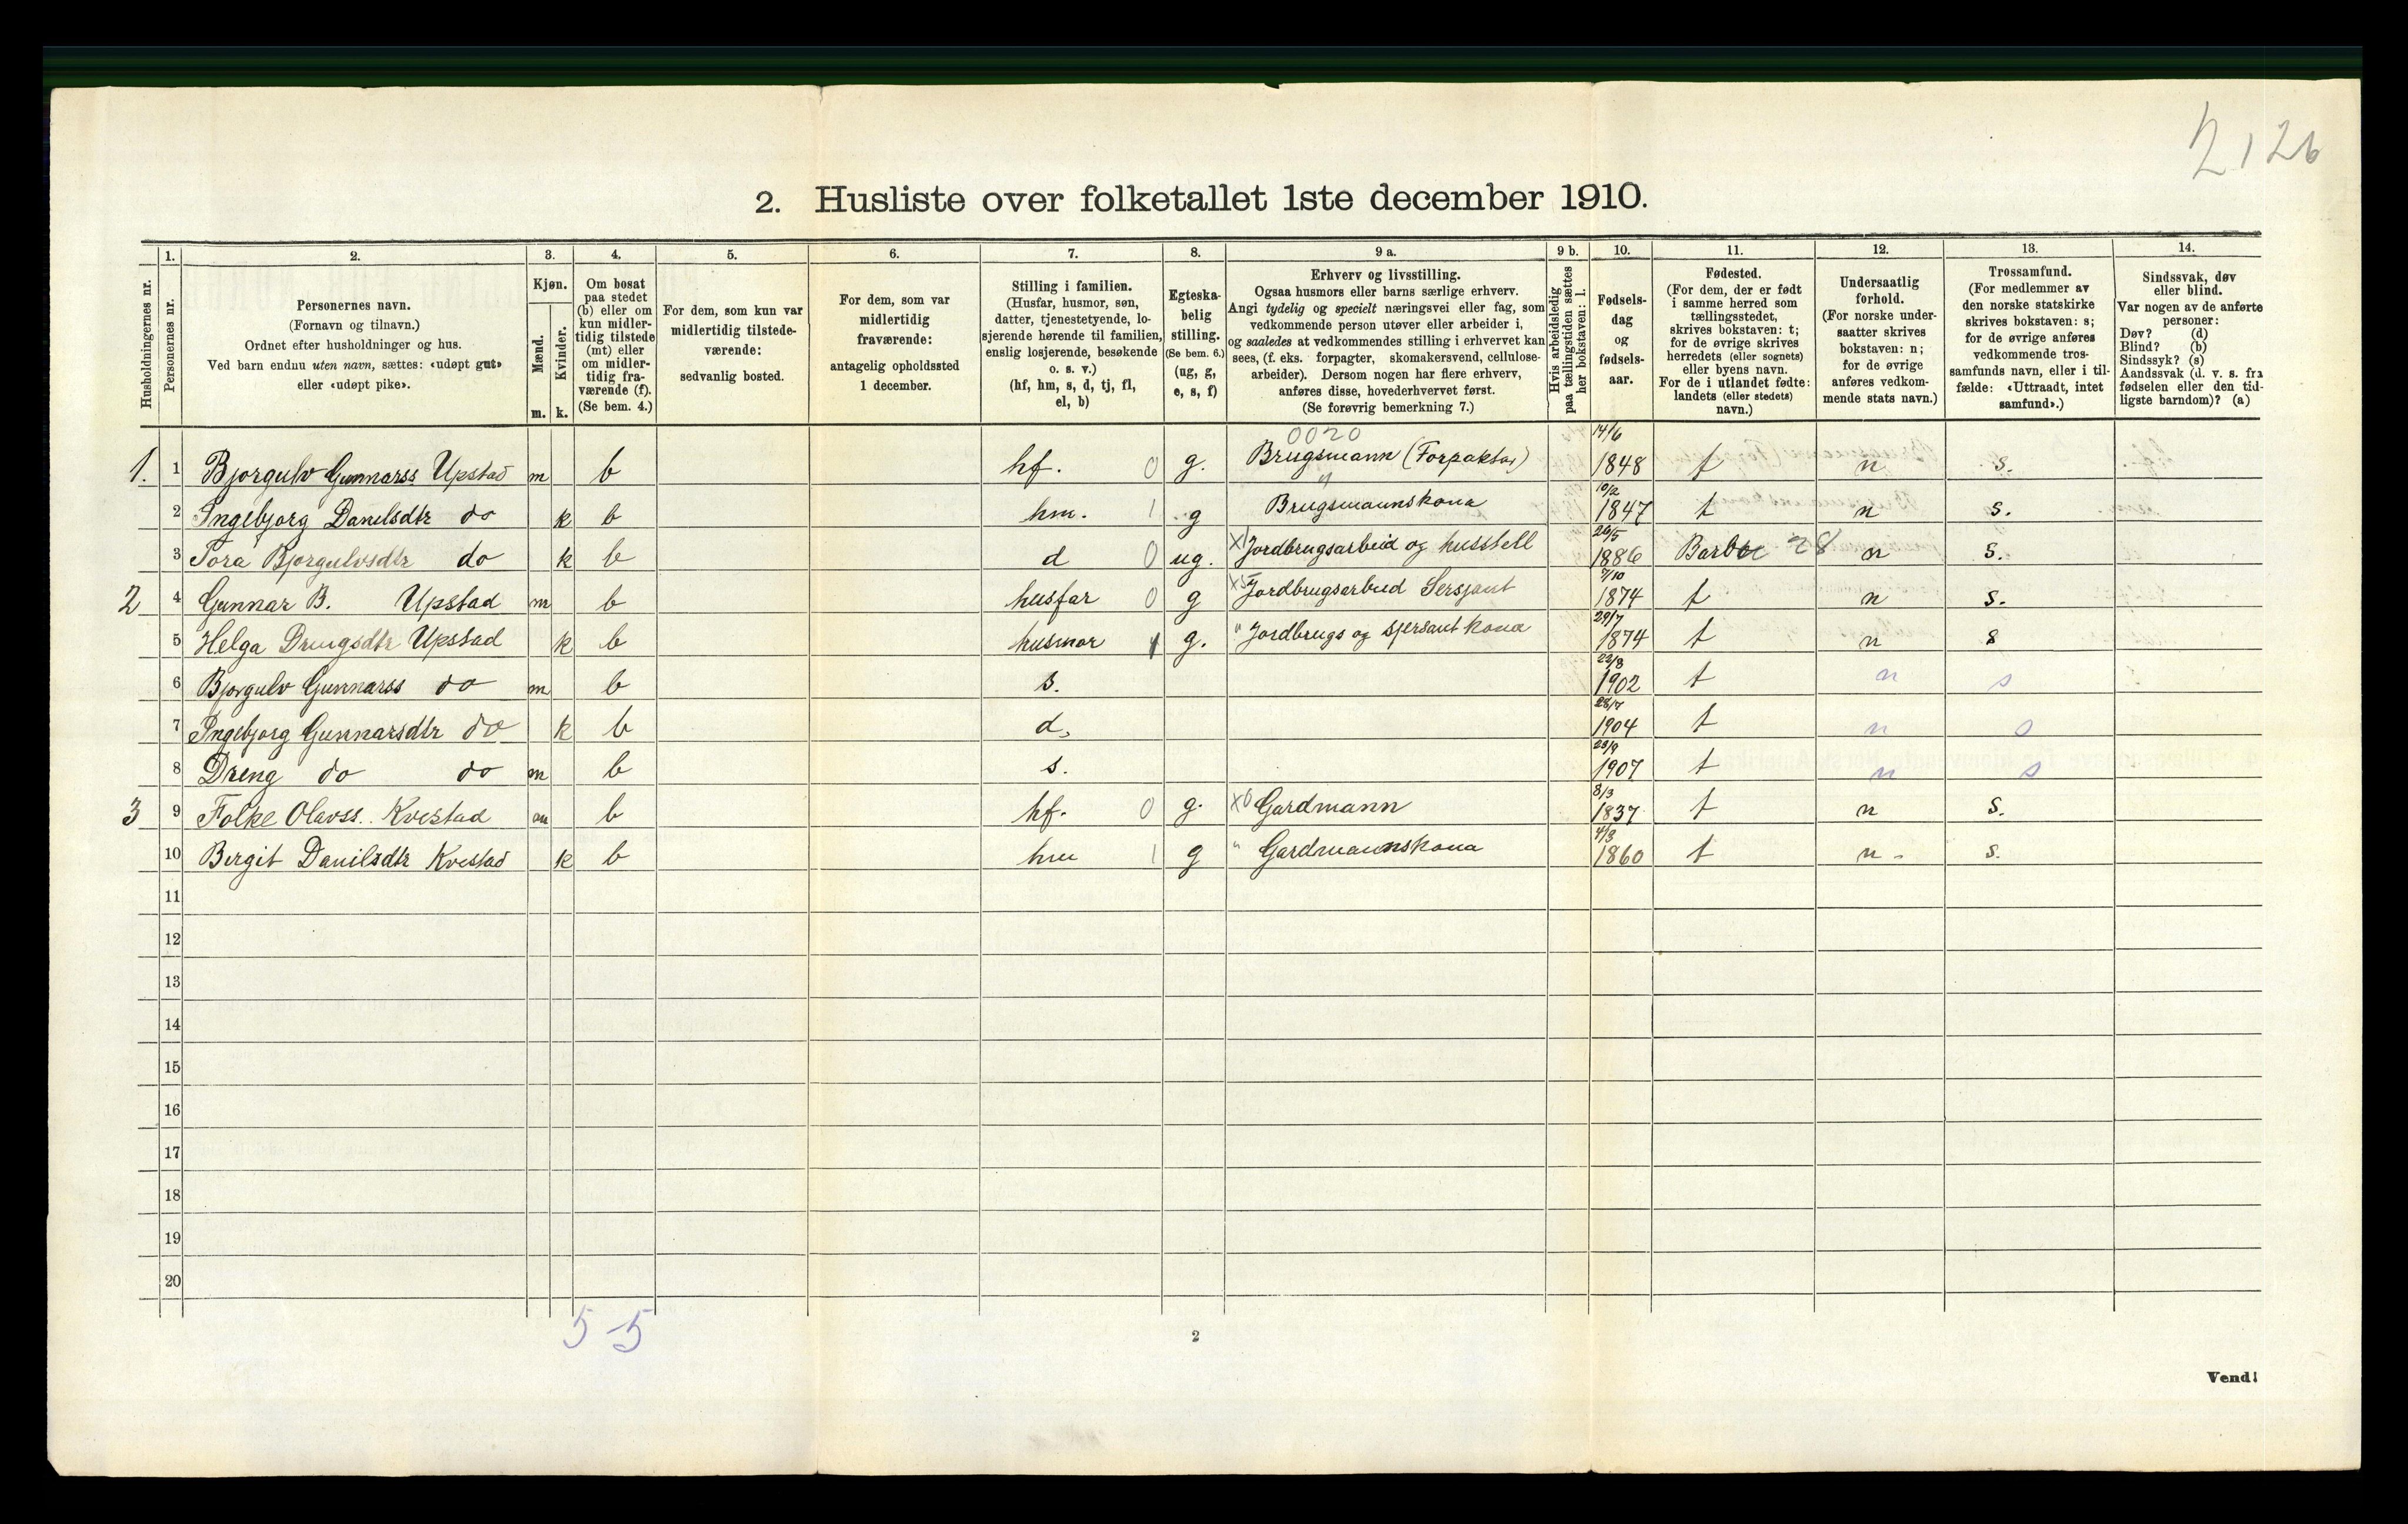 2126
2. Husliste over folketallet 1ste december 1910.
Husholdningernes nr.
1. Personernes nr.
2. Personernes navn. (Fornavn og tilnavn.) Ordnet efter husholdninger og hus. Ved barn endnu uten navn, sættes: «udøpt gut» eller «udøpt pike».
3. Kjøn. Mænd. m. Kvinder. k.
4. Om bosat paa stedet (b) eller om kun midlertidig tilstede (mt) eller om midlertidig fraværende (f). (Se bem. 4.)
5. For dem, som kun var midlertidig tilstedeværende: sedvanlig bosted.
6. For dem, som var midlertidig fraværende: antagelig opholdssted 1 december.
7. Stilling i familien. (Husfar, husmor, søn, datter, tjenestetyende, losjerende hørende til familien, enslig losjerende, besøkende o. s. v.) (hf, hm, s, d, tj, fl, el, b)
8. Egteskabelig stilling. (Se bem. 6.) (ug, g, e, s, f)
9 a. Erhverv og livsstilling. Ogsaa husmors eller barns særlige erhverv. Angi tydelig og specielt næringsvei eller fag, som vedkommende person utøver eller arbeider i, og saaledes at vedkommendes stilling i erhvervet kan sees, (f. eks. forpagter, skomakersvend, cellulosearbeider). Dersom nogen har flere erhverv, anføres disse, hovederhvervet først. (Se forøvrig bemerkning 7.)
9 b. Hvis arbeidsledig paa tællingstiden sættes her bokstaven: l.
10. Fødselsdag og fødselsaar.
11. Fødested. (For dem, der er født i samme herred som tællingsstedet, skrives bokstaven: t; for de øvrige skrives herredets (eller sognets) eller byens navn. For de i utlandet fødte: landets (eller stedets) navn.)
12. Undersaatlig forhold. (For norske undersaatter skrives bokstaven: n; for de øvrige anføres vedkommende stats navn.)
13. Trossamfund. (For medlemmer av den norske statskirke skrives bokstaven: s; for de øvrige anføres vedkommende trossamfunds navn, eller i tilfælde: «Uttraadt, intet samfund».)
14. Sindssvak, døv eller blind. Var nogen av de anførte personer: Døv? (d) Blind? (b) Sindssyk? (s) Aandssvak (d. v. s. fra fødselen eller den tidligste barndom)? (a)
1. 1 Bjorgulv Gunnarss Upstad m b hf. 0 g. 0020 Brugsmann (Forpaktar) 14/6 1848 t n s.
2 Ingebjorg Danilsdtr do k b hm. 1 g " Brugsmannskona 10/2 1847 t n s.
3 Tora Bjorgulvsdtr do k b d 0 ug. x1 Jordbrugsarbeid og husstell 26/5 1886 Barbu 28 n s.
2 4 Gunnar B. Upstad m b husfar 0 g x5 Jordbrugsarbeid Sersjant 7/10 1874 t n s.
5 Helga Drengsdtr Upstad k b husmor 1 g. " Jordbrugs og sjersant kona 29/7 1874 t n s
6 Bjorgulv Gunnarss do m b s. 22/8 1902 t n s
7 Ingebjorg Gunnarsdtr do k b d, 28/7 1904 t n s
8 Dreng do do m b s. 23/9 1907 t n s
3 9 Folke Olavss. Kvestad m b hf. 0 g. x6 Gardmann 8/3 1837 t n s.
10 Bergit Danilsdtr Kvestad k b hm 1 g " Gardmannskona 4/3 1860 t n. s.
11
12
13
14
15
16
17
18
19
20
5-5
2
Vend!